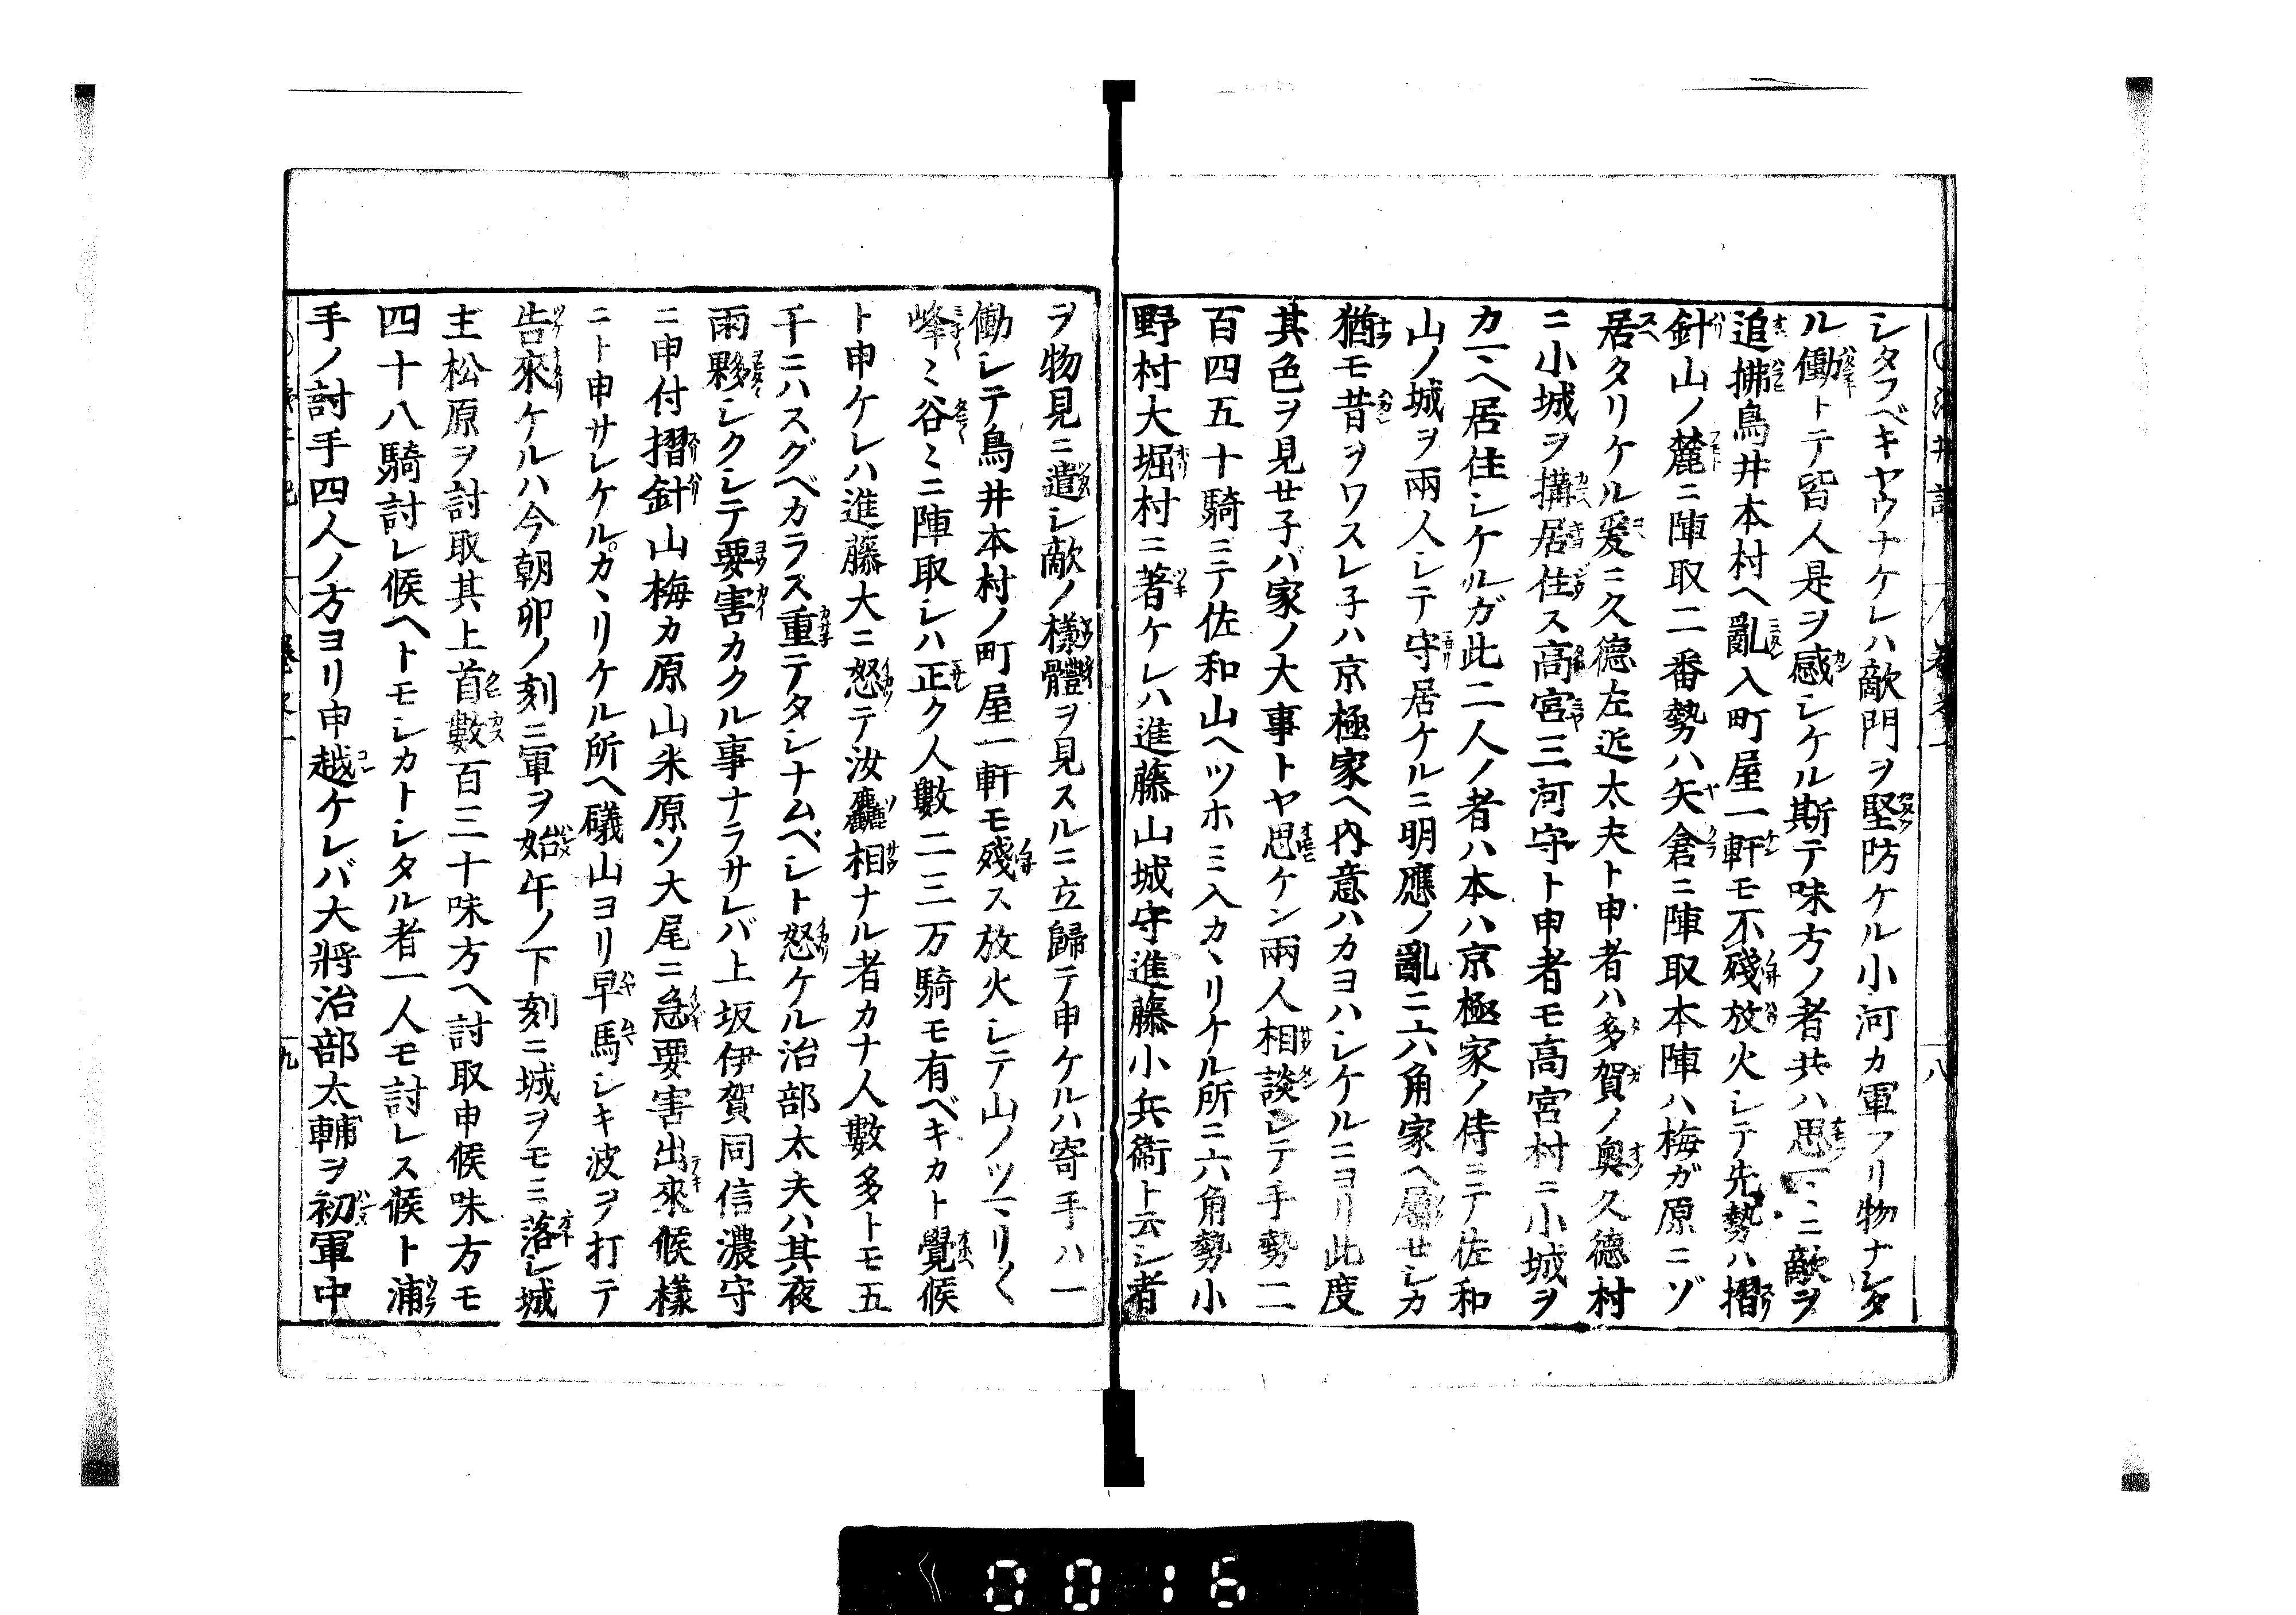 シタフベキヤウナケレハ敵門ヲ堅防ケル小河カ軍フリ物ナレタ
ル働トテ皆人是ヲ感シケル斯テ味方ノ者共ハ思ニ敵ヲ
追拂鳥井本村ヘ亂入町屋一軒モ不殘放火シテ先勢ハ摺
針山ノ麓ニ陣取二番勢ハ矢倉ニ陣取本陣ハ梅ガ原ニゾ
居タリケル爰ニ久德左近太夫ト申者ハ多賀ノ奥久德村
ニ小城ヲ搆居住ス高宮三河守ト申者モ高宮村ニ小城ヲ
カマヘ居住シケルガ此二人ノ者ハ本ハ京極家ノ侍ニテ佐和
山ノ城ヲ兩人シテ守居ケルニ明應ノ亂ニ六角家ヘ屬せシカ
猶モ昔ヲワスレ子ハ京極家ヘ内意ハカヨハシケルニヨリ此度
其色ヲ見せ子バ家ノ大事トヤ思ケン兩人相談シテ手勢二
百四五十騎ニテ佐和山ヘツホミ入カヽリケル所ニ六角勢小
野村大堀村ニ著ケレハ進藤山城守進藤小兵衞ト云シ者
ヲ物見ニ遣シ敵ノ樣體ヲ見スルニ立歸テ申ケルハ寄手ハ一
働シテ鳥井本村ノ町屋一軒モ殘ス放火シテ山ノツマリ〱
峰ミ谷ミニ陣取シハ正ク人數二三万騎モ有ベキカト覺候
ト申ケレハ進藤大ニ怒テ汝麤相ナル者カナ人數多トモ五
千ニハスグベカラス重テタシナムベシト怒ケル治部太夫ハ其夜
雨夥シクシテ要害カクル事ナラサレバ上坂伊賀同信濃守
ニ申付摺針山梅カ原山米原ソ大尾ニ急要害出來候樣
ニト申サレケルカヽリケル所ヘ礒山ヨリ早馬シキ波ヲ打テ
告來ケルハ今朝卯ノ刻ニ軍ヲ始午ノ下刻ニ城ヲモミ落シ城
主松原ヲ討取其上首數百三十味方ヘ討取申候味方モ
四十八騎討レ候ヘトモシカトシタル者一人モ討レス候ト浦
手ノ討手四人ノ方ヨリ申越ケレバ大將治部太輔ヲ初軍中